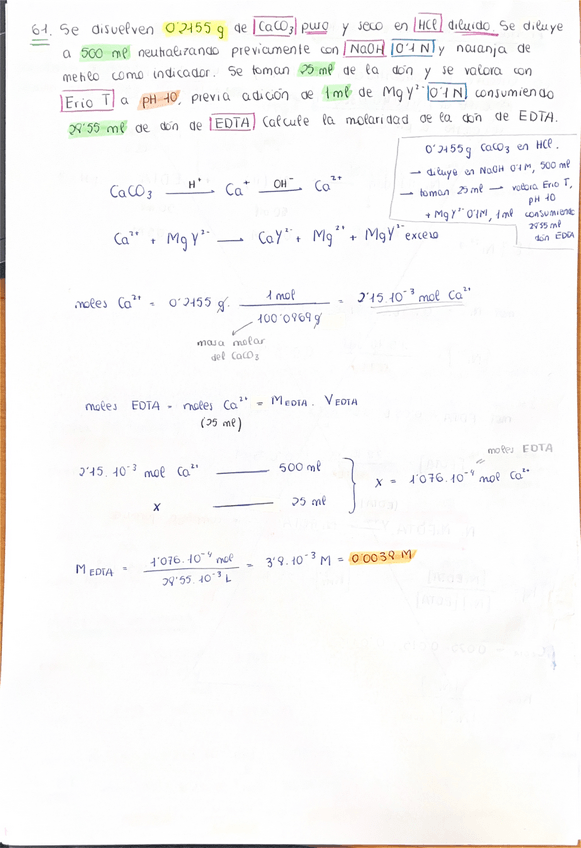 61. Se disuelven 0'2155 g de CaCO₃ puro y seco en HCl diluido. Se diluye
a 500 ml neutralizando previamente con NaOH 0'1 N y naranja de
metilo como indicador. Se toman 25 ml de la don y se valora con
Erio T a pH 10, previa adición de 1 ml de MgY²⁻ 0'1 N consumiendo
28'55 ml de don de EDTA. Calcule la molaridad de la don de EDTA.
0'2155 g CaCO₃ en HCl.
→ diluye en NaOH 0'1M, 500 ml
→ toman 25 ml → valora Erio T,
pH 10
+ MgY²⁻ 0'1M, 1 ml consumiendo
28'55 ml
don EDTA
CaCO₃ —H⁺→ Ca⁺ —OH⁻→ Ca²⁺
Ca²⁺ + MgY²⁻ → CaY²⁻ + Mg²⁺ + MgY²⁻ exceso
moles Ca²⁺ = 0'2155 g · 1 mol / 100'0869 g = 2'15·10⁻³ mol Ca²⁺
masa molar
del CaCO₃
moles EDTA = moles Ca²⁺ = M EDTA · V EDTA
(25 ml)
moles EDTA
2'15·10⁻³ mol Ca²⁺ — 500 ml
x — 25 ml
x = 1'076·10⁻⁴ mol Ca²⁺
M EDTA = 1'076·10⁻⁴ mol / 28'55·10⁻³ L = 3'8·10⁻³ M = 0'0038 M